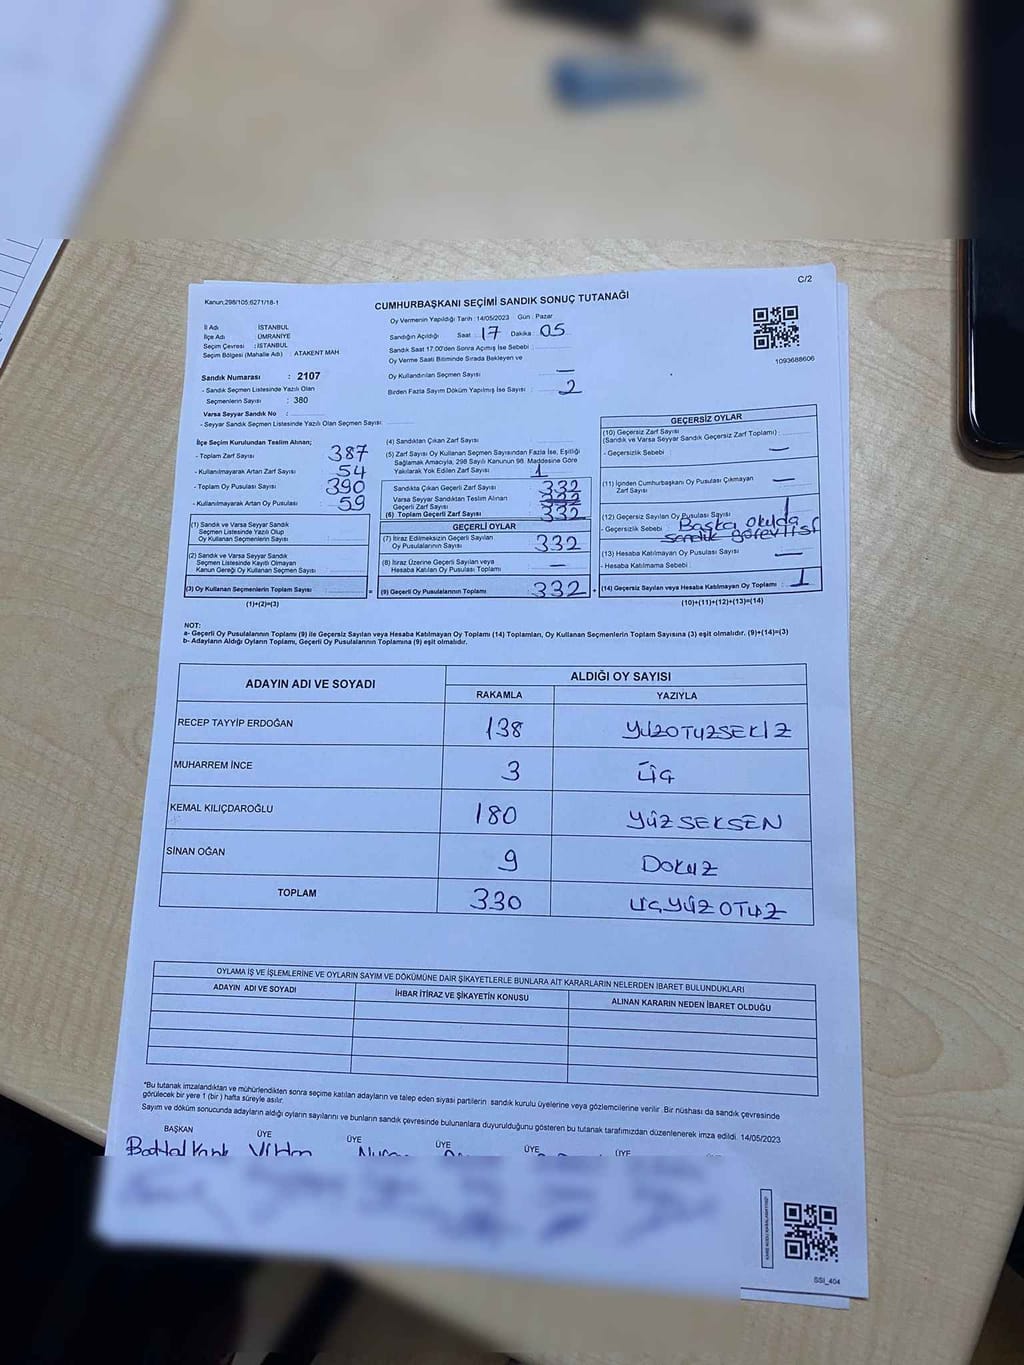 C/2
Kanun;298/105;6271/18-1
CUMHURBAŞKANI SEÇİMİ SANDIK SONUÇ TUTANAĞI
Oy Vermenin Yapıldığı Tarih : 14/05/2023 Gün : Pazar
İl Adı : İSTANBUL
İlçe Adı : ÜMRANİYE
Seçim Çevresi : İSTANBUL
Seçim Bölgesi (Mahalle Adı) : ATAKENT MAH
Sandığın Açıldığı Saat 17 Dakika 05
Sandık Saat 17:00'den Sonra Açılmış İse Sebebi :
Oy Verme Saati Bitiminde Sırada Bekleyen ve
Oy Kullandırılan Seçmen Sayısı —
Birden Fazla Sayım Döküm Yapılmış İse Sayısı : 2
1093688606
Sandık Numarası : 2107
- Sandık Seçmen Listesinde Yazılı Olan
Seçmenlerin Sayısı : 380
Varsa Seyyar Sandık No :
- Seyyar Sandık Seçmen Listesinde Yazılı Olan Seçmen Sayısı
İlçe Seçim Kurulundan Teslim Alınan;
- Toplam Zarf Sayısı 387
- Kullanılmayarak Artan Zarf Sayısı 54
- Toplam Oy Pusulası Sayısı 390
- Kullanılmayarak Artan Oy Pusulası 59
(1) Sandık ve Varsa Seyyar Sandık
Seçmen Listesinde Yazılı Olup
Oy Kullanan Seçmenlerin Sayısı
(2) Sandık ve Varsa Seyyar Sandık
Seçmen Listesinde Kayıtlı Olmayan
Kanun Gereği Oy Kullanan Seçmen Sayısı
(3) Oy Kullanan Seçmenlerin Toplam Sayısı
(1)+(2)=(3)
(4) Sandıktan Çıkan Zarf Sayısı
(5) Zarf Sayısı Oy Kullanan Seçmen Sayısından Fazla İse, Eşitliği
Sağlamak Amacıyla, 298 Sayılı Kanunun 98. Maddesine Göre
Yakılarak Yok Edilen Zarf Sayısı 1
Sandıkta Çıkan Geçerli Zarf Sayısı 332
Varsa Seyyar Sandıktan Teslim Alınan
Geçerli Zarf Sayısı
(6) Toplam Geçerli Zarf Sayısı 332
GEÇERLİ OYLAR
(7) İtiraz Edilmeksizin Geçerli Sayılan
Oy Pusulalarının Sayısı 332
(8) İtiraz Üzerine Geçerli Sayılan veya
Hesaba Katılan Oy Pusulası Toplamı —
(9) Geçerli Oy Pusulalarının Toplamı 332
GEÇERSİZ OYLAR
(10) Geçersiz Zarf Sayısı
(Sandık ve Varsa Seyyar Sandık Geçersiz Zarf Toplamı)
- Geçersizlik Sebebi —
(11) İçinden Cumhurbaşkanı Oy Pusulası Çıkmayan
Zarf Sayısı —
(12) Geçersiz Sayılan Oy Pusulası Sayısı 1
- Geçersizlik Sebebi : Başka okulda
sandık görevlisi
(13) Hesaba Katılmayan Oy Pusulası Sayısı —
- Hesaba Katılmama Sebebi
(14) Geçersiz Sayılan veya Hesaba Katılmayan Oy Toplamı 1
(10)+(11)+(12)+(13)=(14)
NOT:
a- Geçerli Oy Pusulalarının Toplamı (9) ile Geçersiz Sayılan veya Hesaba Katılmayan Oy Toplamı (14) Toplamları, Oy Kullanan Seçmenlerin Toplam Sayısına (3) eşit olmalıdır. (9)+(14)=(3)
b- Adayların Aldığı Oyların Toplamı, Geçerli Oy Pusulalarının Toplamına (9) eşit olmalıdır.
ADAYIN ADI VE SOYADI ALDIĞI OY SAYISI
RAKAMLA YAZIYLA
RECEP TAYYİP ERDOĞAN 138 YÜZOTUZSEKİZ
MUHARREM İNCE 3 ÜÇ
KEMAL KILIÇDAROĞLU 180 YÜZSEKSEN
SİNAN OĞAN 9 DOKUZ
TOPLAM 330 ÜÇYÜZOTUZ
OYLAMA İŞ VE İŞLEMLERİNE VE OYLARIN SAYIM VE DÖKÜMÜNE DAİR ŞİKAYETLERLE BUNLARA AİT KARARLARIN NELERDEN İBARET BULUNDUKLARI
ADAYIN ADI VE SOYADI İHBAR İTİRAZ VE ŞİKAYETİN KONUSU ALINAN KARARIN NEDEN İBARET OLDUĞU
*Bu tutanak imzalandıktan ve mühürlendikten sonra seçime katılan adayların ve talep eden siyasi partilerin sandık kurulu üyelerine veya gözlemcilerine verilir. Bir nüshası da sandık çevresinde
görülecek bir yere 1 (bir) hafta süreyle asılır.
Sayım ve döküm sonucunda adayların aldığı oyların sayılarını ve bunların sandık çevresinde bulunanlara duyurulduğunu gösteren bu tutanak tarafımızdan düzenlenerek imza edildi. 14/05/2023
BAŞKAN ÜYE ÜYE ÜYE ÜYE ÜYE
SSI_404